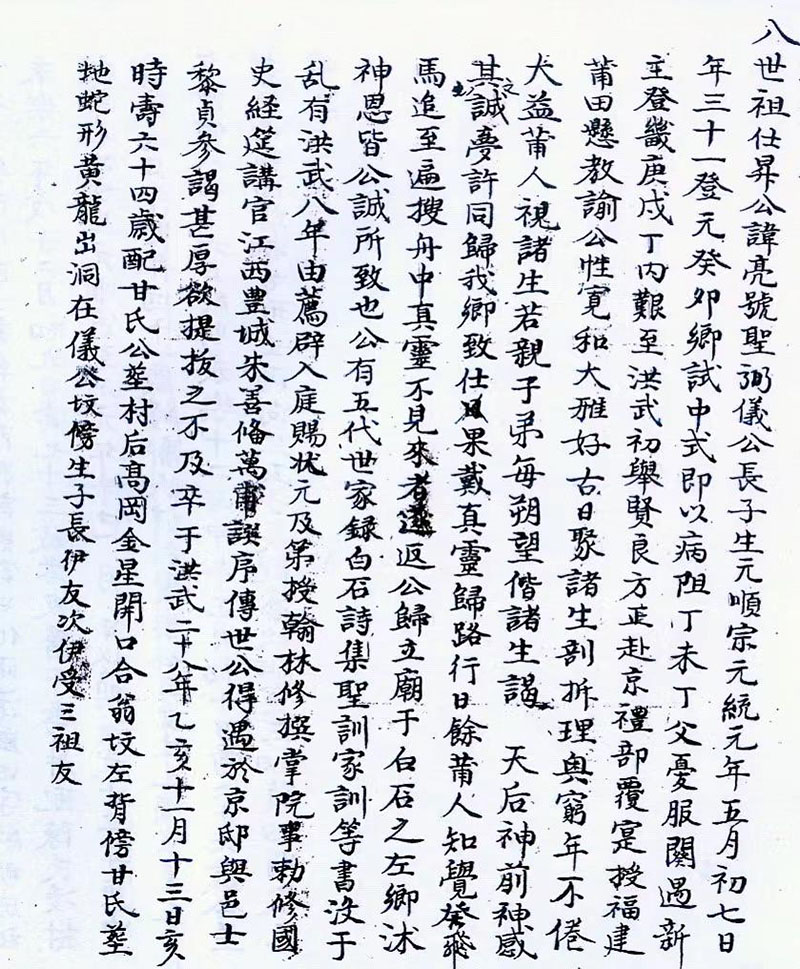 八世祖仕昇公諱亮號聖弼儀公長子生元順宗元統元年五月初七日
年三十一登元癸卯鄉試中式即以病阻丁未丁父憂服闋遇新
主登畿庚戌丁內艱至洪武初舉賢良方正赴京禮部覆寔授福建
莆田懸教諭公性寬和大雅好古日聚諸生剖拆理奧窮年不倦
犬益莆人視諸生若親子弟每朔望偕諸生謁 天后神前神感
其誠夢許同歸我鄉致仕果戴真靈歸路行日餘莆人知覺發飛
馬追至遍搜舟中真靈不見來者遂返公歸立廟于白石之左鄉沐
神恩皆公誠所致也公有五代世家録白石詩集聖訓家訓等書沒于
乱有洪武八年由薦辟入庭賜狀元及第授翰林修撰掌院事勅修國
史経筵講官江西豊城朱善備萬譔序傳世公得遇於京邸與邑士
黎貞參謁甚厚欲提拔之不及卒于洪武二十八年乙亥十一月十三日亥
時壽六十四歲配甘氏公塟村后髙岡金星開口合翁坟左背傍甘氏塟
地蛇形黃龍出洞在儀公坟傍生子長伊友次伊受三祖友